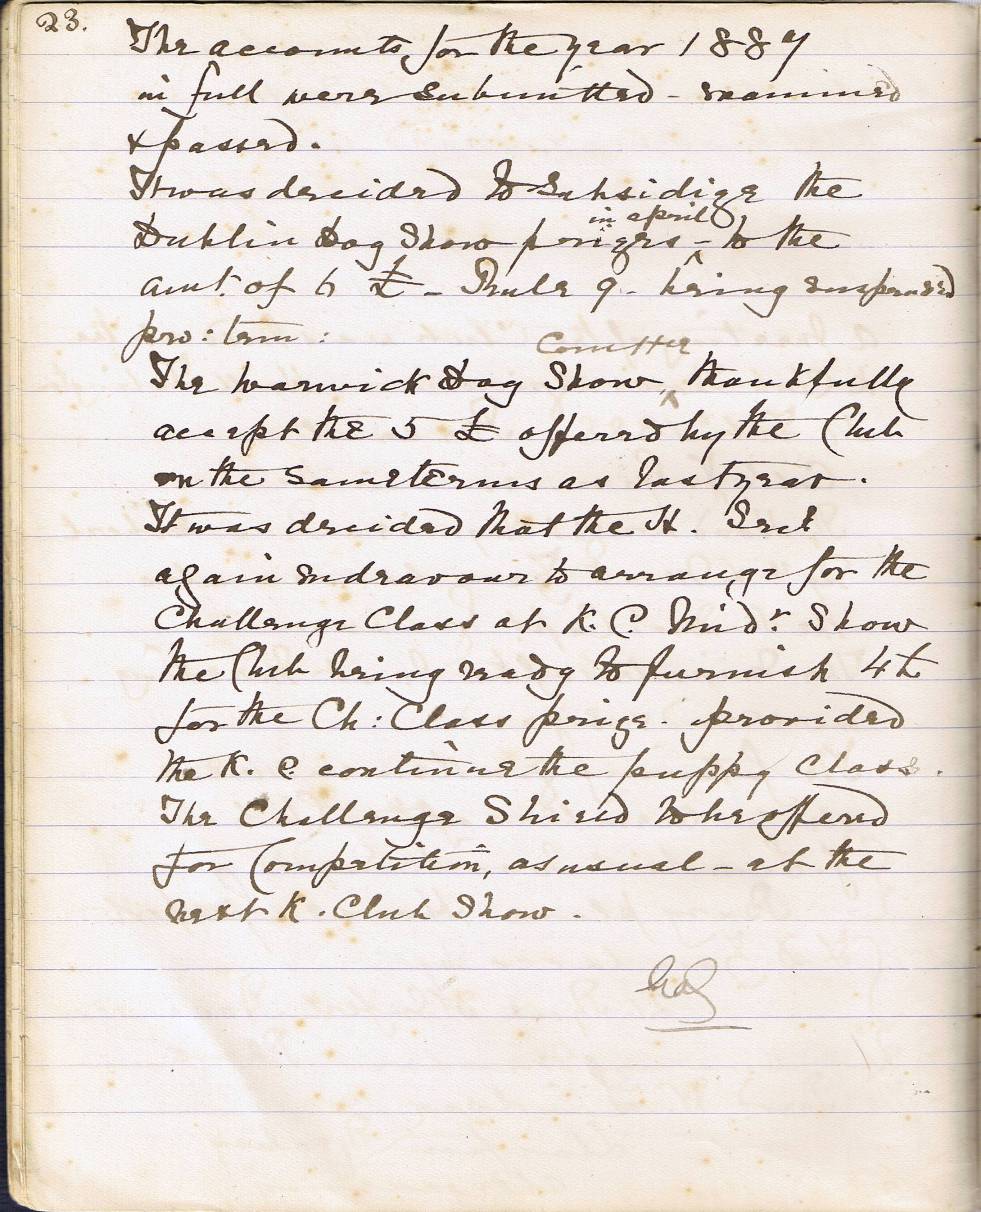 23.
The accounts for the year 1887
in full were submitted - examined
& passed.
It was decided to subsidize the
in april
Dublin Dog Show prizes - to the
amt. of 6 £ - Rule 9 - being suspended
pro: tem:
Comttee
The Warwick Dog Show ^ thankfully
accept the 5 £ offered by the Club
on the same terms as last year.
It was decided that the H. Sec
again endeavour to arrange for the
Challenge Class at K. C. Midr. Show
the Club being ready to furnish 4 £
for the Ch: Class prize - provided
the K. C. continue the puppy Class.
The Challenge Shield to be offered
for Competition, as usual - at the
next K. Club Show.